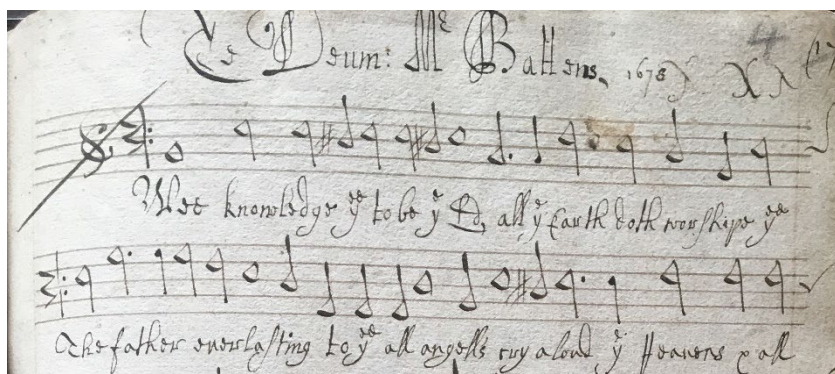 Te Deum: Mr Battens, 1678
Wee knowledge ye to be ye Ld, all ye Earth doth worshipe yee
The father everlasting to yee all angells cry aloud ye Heavens & all